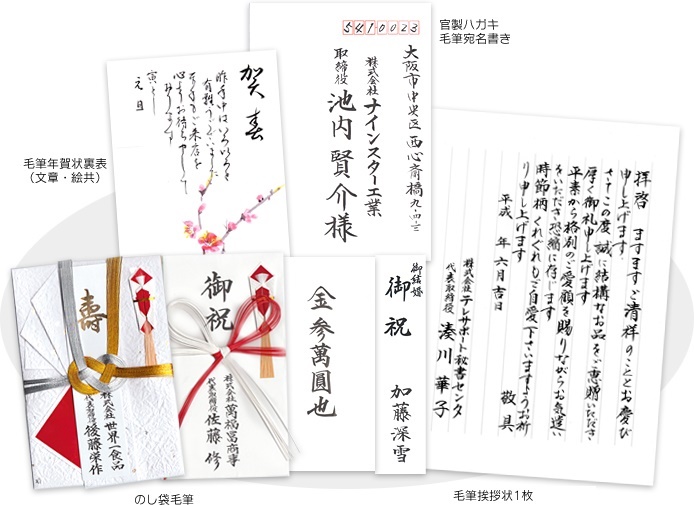 官製ハガキ
毛筆宛名書き
5410023
大阪市中央区西心斎橋九-四-三
株式会社ナインスター工業
取締役
池内賢介様
毛筆年賀状裏表
(文章・絵共)
賀春
昨年中はいろいろと
寅とし
元旦
拝啓 ますますご清祥のこととお慶び
申し上げます
さてこの度誠に結構なお品をご恵贈いただき
厚く御礼申し上げます
平素から格別のご愛顧を賜りながらお気遣い
をいただき恐縮に存じます
時節柄くれぐれもご自愛下さいますようお祈り
申し上げます
敬具
平成 年六月吉日
株式会社テレサポート秘書センタ
代表取締役
湊川華子
寿
株式会社世界一食品
代表取締役
後藤栄作
御祝
株式会社萬福富商事
代表取締役
佐藤修
金参萬圓也
御結婚
御祝
加藤深雪
のし袋毛筆
毛筆挨拶状1枚